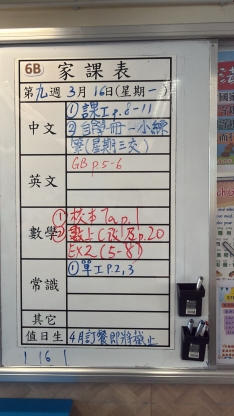 6B 家課表
第九週 3月16日(星期一)
中文 ①課工p.8-11
②自學冊一小練
習(星期三交)
英文 GB p.5-6
數學 ①校本7a p.1
②數上C及 p.20
Ex2 (5-8)
常識 ①單工p.2,3
其它
值日生 4月訂餐即將截止
1 16 1